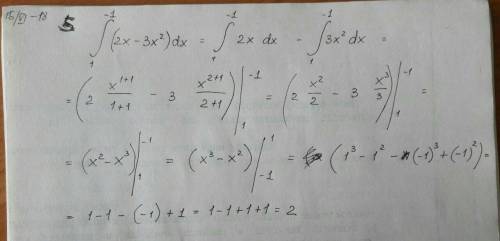 15/VI-18
5
∫₁⁻¹ (2x - 3x²) dx = ∫₁⁻¹ 2x dx - ∫₁⁻¹ 3x² dx =
= (2 x¹⁺¹/1+1 - 3 x²⁺¹/2+1) |₁⁻¹ = (2 x²/2 - 3 x³/3) |₁⁻¹ =
= (x² - x³) |₁⁻¹ = (x³ - x²) |₋₁¹ = (1³ - 1² - (-1)³ + (-1)² =
= 1 - 1 - (-1) + 1 = 1 - 1 + 1 + 1 = 2